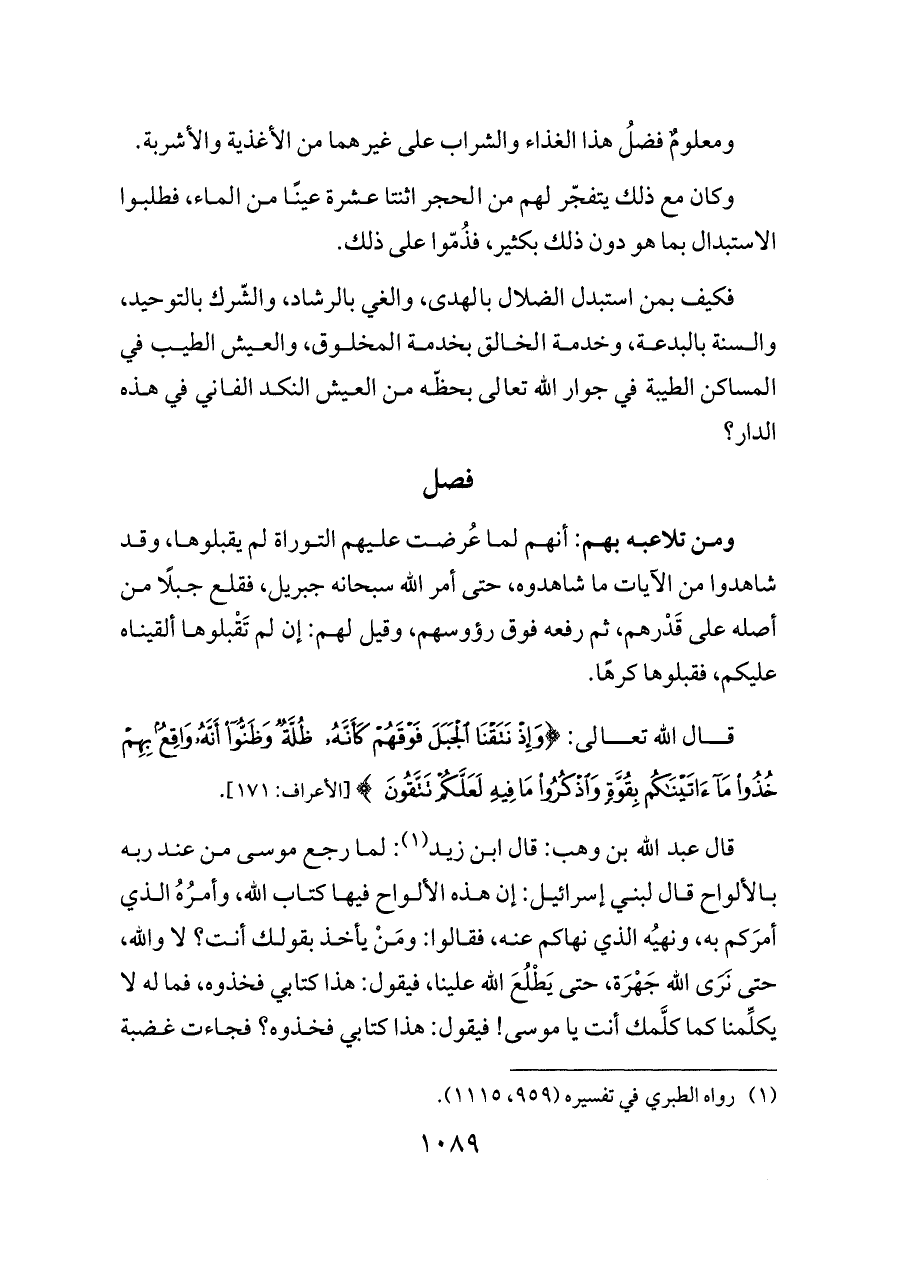 ومعلومٌ فضلُ هذا الغذاء والشراب على غيرهما من الأغذية والأشربة.
وكان مع ذلك يتفجّر لهم من الحجر اثنتا عشرة عينًا من الماء، فطلبوا
الاستبدال بما هو دون ذلك بكثير، فذُمّوا على ذلك.
فكيف بمن استبدل الضلال بالهدى، والغي بالرشاد، والشّرك بالتوحيد،
والسنة بالبدعة، وخدمة الخالق بخدمة المخلوق، والعيش الطيب في
المساكن الطيبة في جوار الله تعالى بحظّه من العيش النكد الفاني في هذه
الدار؟
فصل
ومن تلاعبه بهم: أنهم لما عُرضت عليهم التوراة لم يقبلوها، وقد
شاهدوا من الآيات ما شاهدوه، حتى أمر الله سبحانه جبريل، فقلع جبلًا من
أصله على قَدْرهم، ثم رفعه فوق رؤوسهم، وقيل لهم: إن لم تَقْبلوها ألقيناه
عليكم، فقبلوها كرهًا.
قال الله تعالى: ﴿وَإِذْ نَتَقْنَا ٱلْجَبَلَ فَوْقَهُمْ كَأَنَّهُۥ ظُلَّةٌ وَظَنُّوٓا۟ أَنَّهُۥ وَاقِعٌۢ بِهِمْ
خُذُوا۟ مَآ ءَاتَيْنَٰكُم بِقُوَّةٍ وَٱذْكُرُوا۟ مَا فِيهِ لَعَلَّكُمْ نَتَّقُونَ ﴾ [الأعراف: ١٧١].
قال عبد الله بن وهب: قال ابن زيد(١): لما رجع موسى من عند ربه
بالألواح قال لبني إسرائيل: إن هذه الألواح فيها كتاب الله، وأمرُهُ الذي
أمرَكم به، ونهيُه الذي نهاكم عنه، فقالوا: ومَنْ يأخذ بقولك أنت؟ لا والله،
حتى نَرَى الله جَهْرَة، حتى يَطْلُعَ الله علينا، فيقول: هذا كتابي فخذوه، فما له لا
يكلِّمنا كما كلَّمك أنت يا موسى! فيقول: هذا كتابي فخذوه؟ فجاءت غضبة
(١) رواه الطبري في تفسيره (٩٥٩، ١١١٥).
١٠٨٩